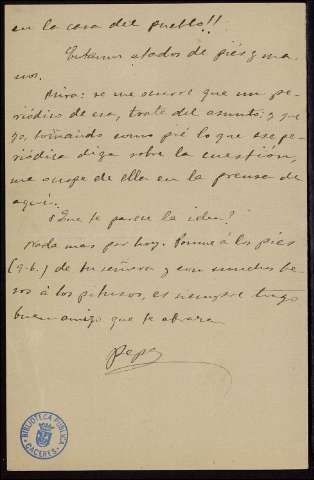 en la casa del pueblo!!
Estamos atados de piés y ma-
nos.
Mira: se me ocurre que un pe-
riódico de esa, trate del asunto; y que
yo, tomando como pié lo que ese pe-
riódico diga sobre la cuestión,
me ocupe de ella en la prensa de
aquí.
¿Que te parece la idea?
Nada mas por hoy. Ponme á los pies
(q.b.) de tu señora y con muchos be-
sos á los pitusos, es siempre tuyo
buen amigo que te abraza
Pepe
BIBLIOTECA PÚBLICA
CÁCERES